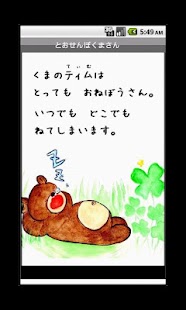 5:49 AM
とおせんぼくまさん
てぃむ
くまのティムは
とっても おねぼうさん。
いつでも どこでも
ねてしまいます。
ZZZ